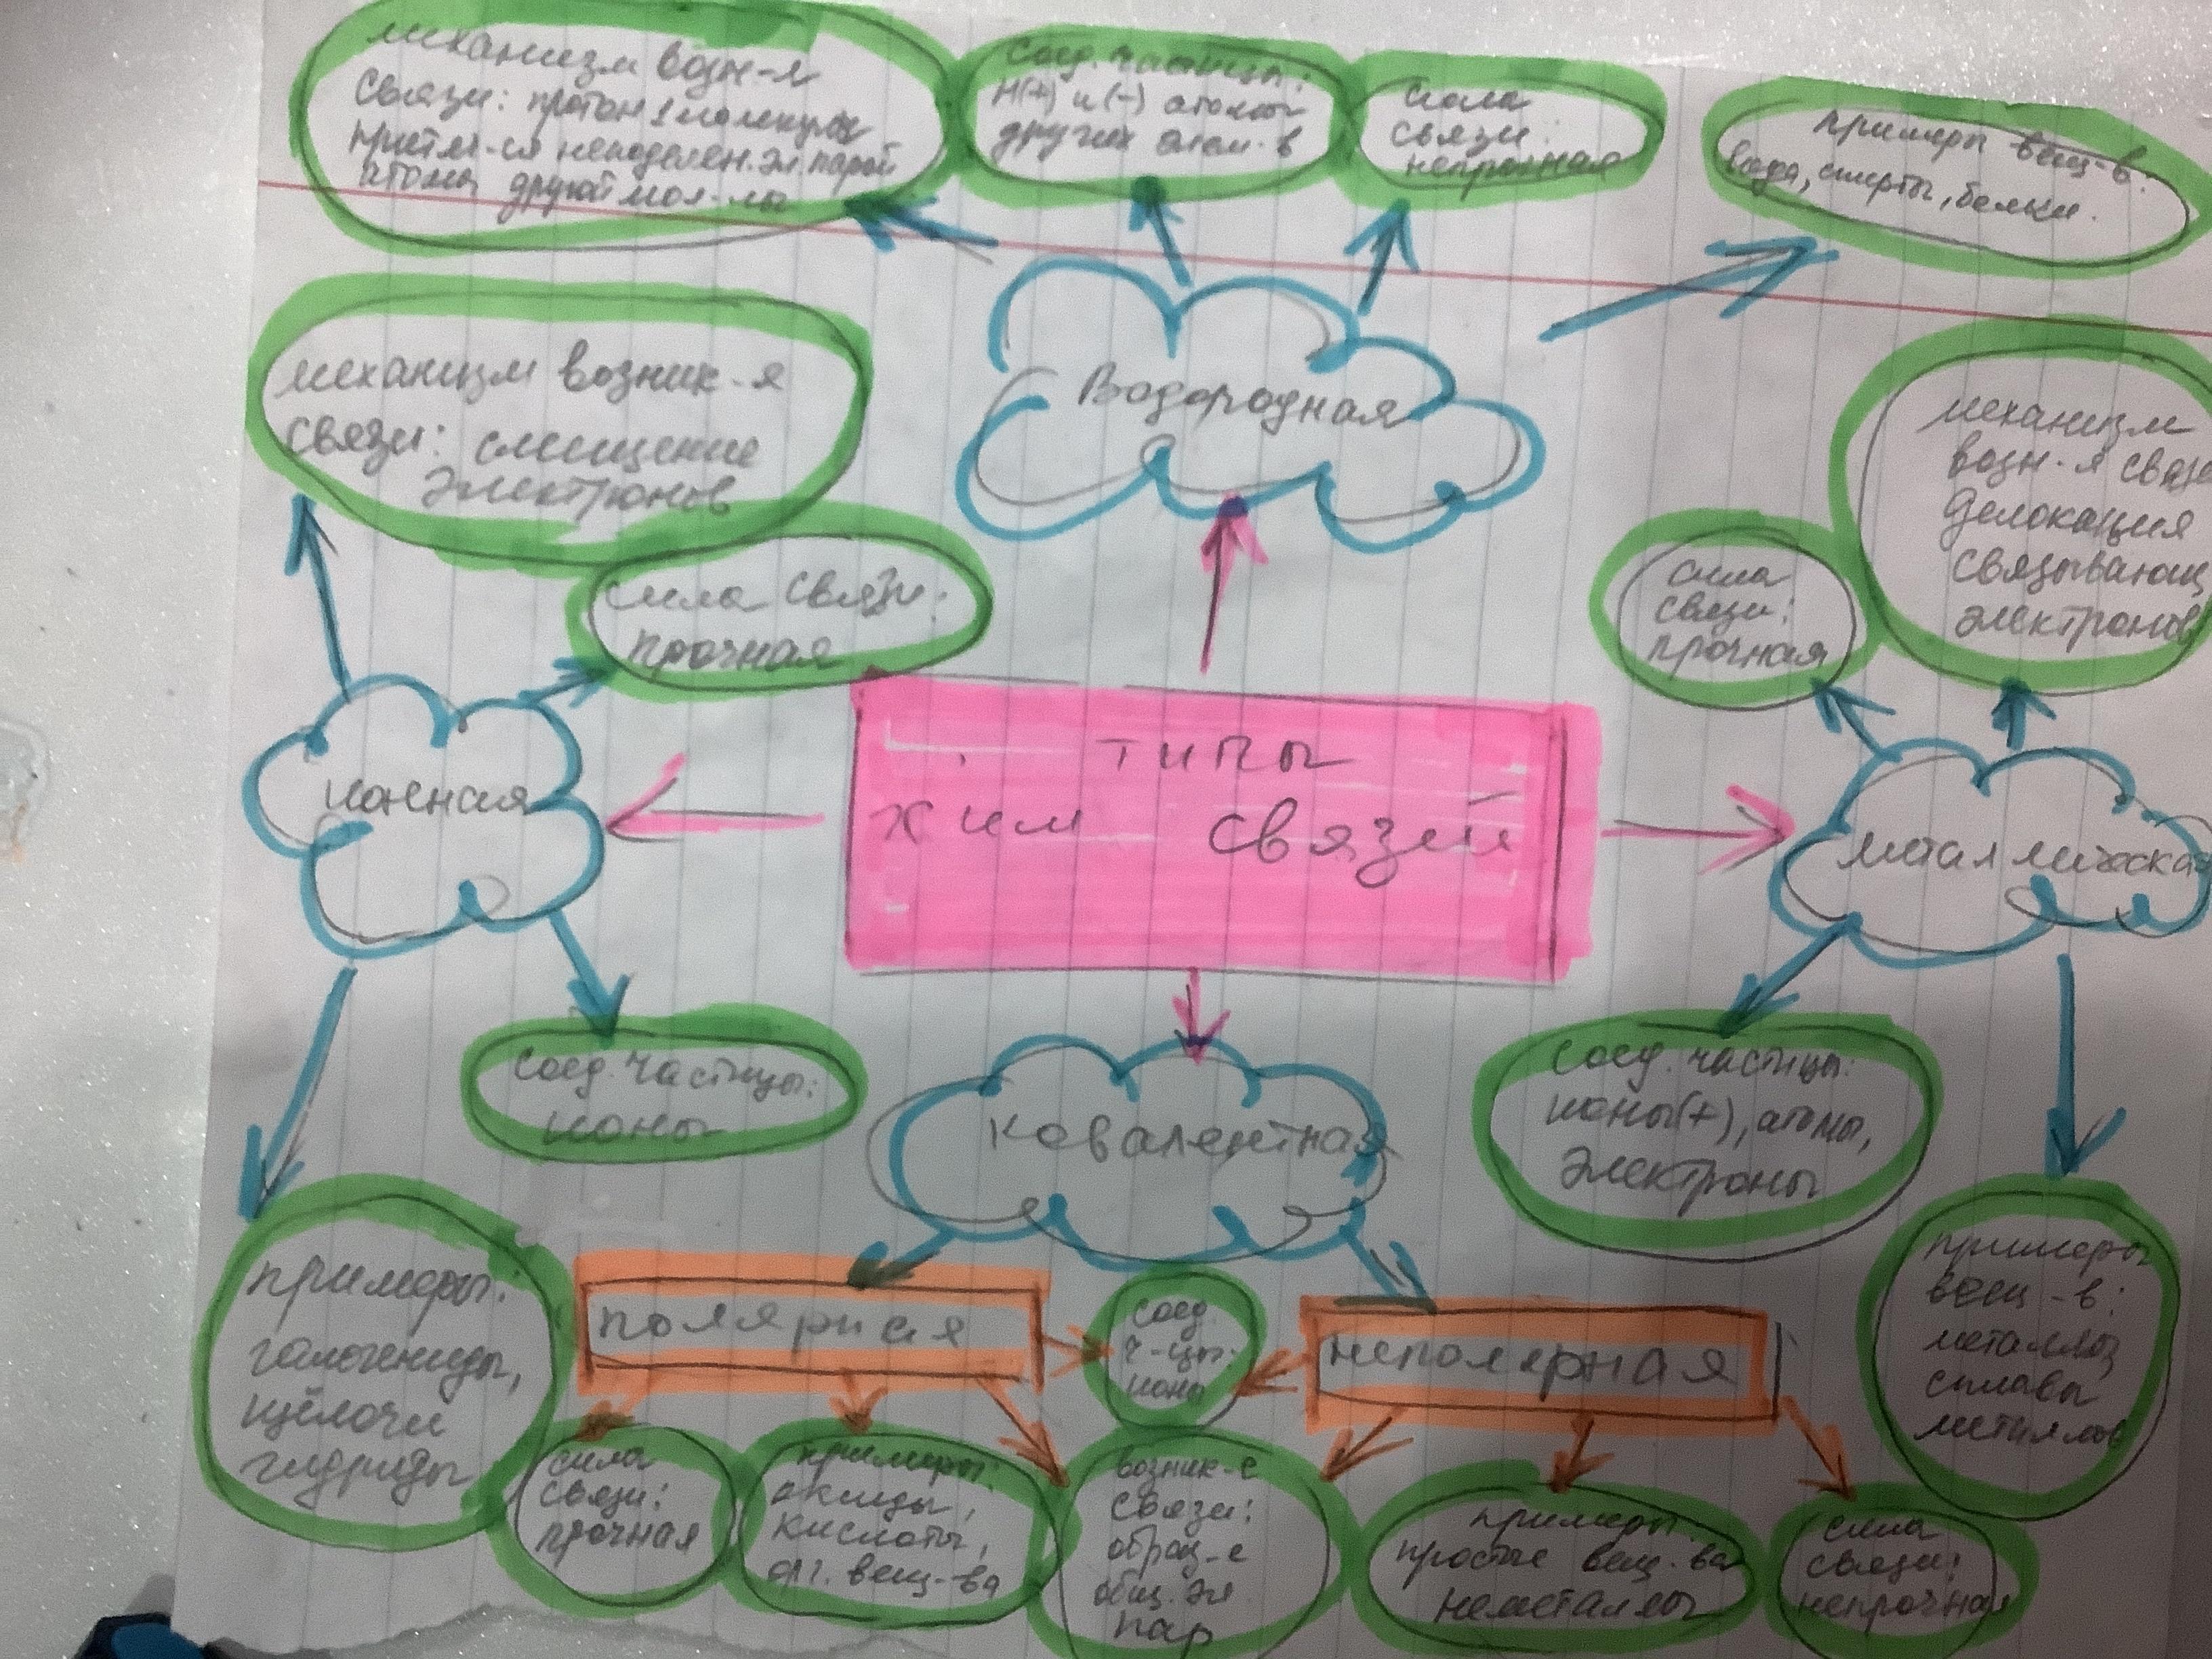 механизм возн-я
связи: протон 1 молекулы
притяг-ся неподелен. эл. парой
атома другой мол-лы
соед. частицы:
H(+) и (-) атомы
других элем-в
сила
связи:
непрочная
примеры вещ-в:
вода, спирты, белки.
Водородная
механизм возник-я
связи: смещение
электронов
сила связи:
прочная
ионная
соед. частицы:
ионы
примеры:
галогениды,
щёлочи
гидриды
типы
хим связей
механизм
возн-я связ
делокация
связывающ
электронов
сила
связи:
прочная
металлическая
соед. частицы:
ионы(+), атомы,
электроны
примеры
вещ-в:
металлы,
сплавы
металлов
ковалентная
полярная
соед.
ч-цы:
ионы
неполярная
сила
связи:
прочная
примеры:
оксиды,
кислоты,
орг. вещ-ва
возник-е
связи:
образ-е
общ. эл.
пар
примеры:
простые вещ-ва
неметаллы
сила
связи:
непрочная